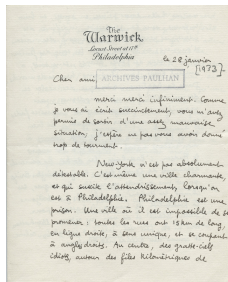 The
Warwick
Locust Street at 17th
Philadelphia
le 28 janvier
[1973]-
Cher ami,
ARCHIVES PAULHAN
merci merci infiniment. Comme
je vous ai écrit succinctement, vous m'avez
permis de sortir d'une assez mauvaise
situation, j'espère ne pas vous avoir donné
trop de tourment.
New-York n'est pas absolument
détestable. C'est même une ville charmante,
et qui suscite l'attendrissement, lorsqu'on
est à Philadelphie. Philadelphie est une
prison. Une ville où il est impossible de se
promener : toutes les rues ont 15 km de long,
en ligne droite, à sens unique, et se coupant
à angles droits. Au centre, des gratte-ciels
idiots, autour des files kilométriques de